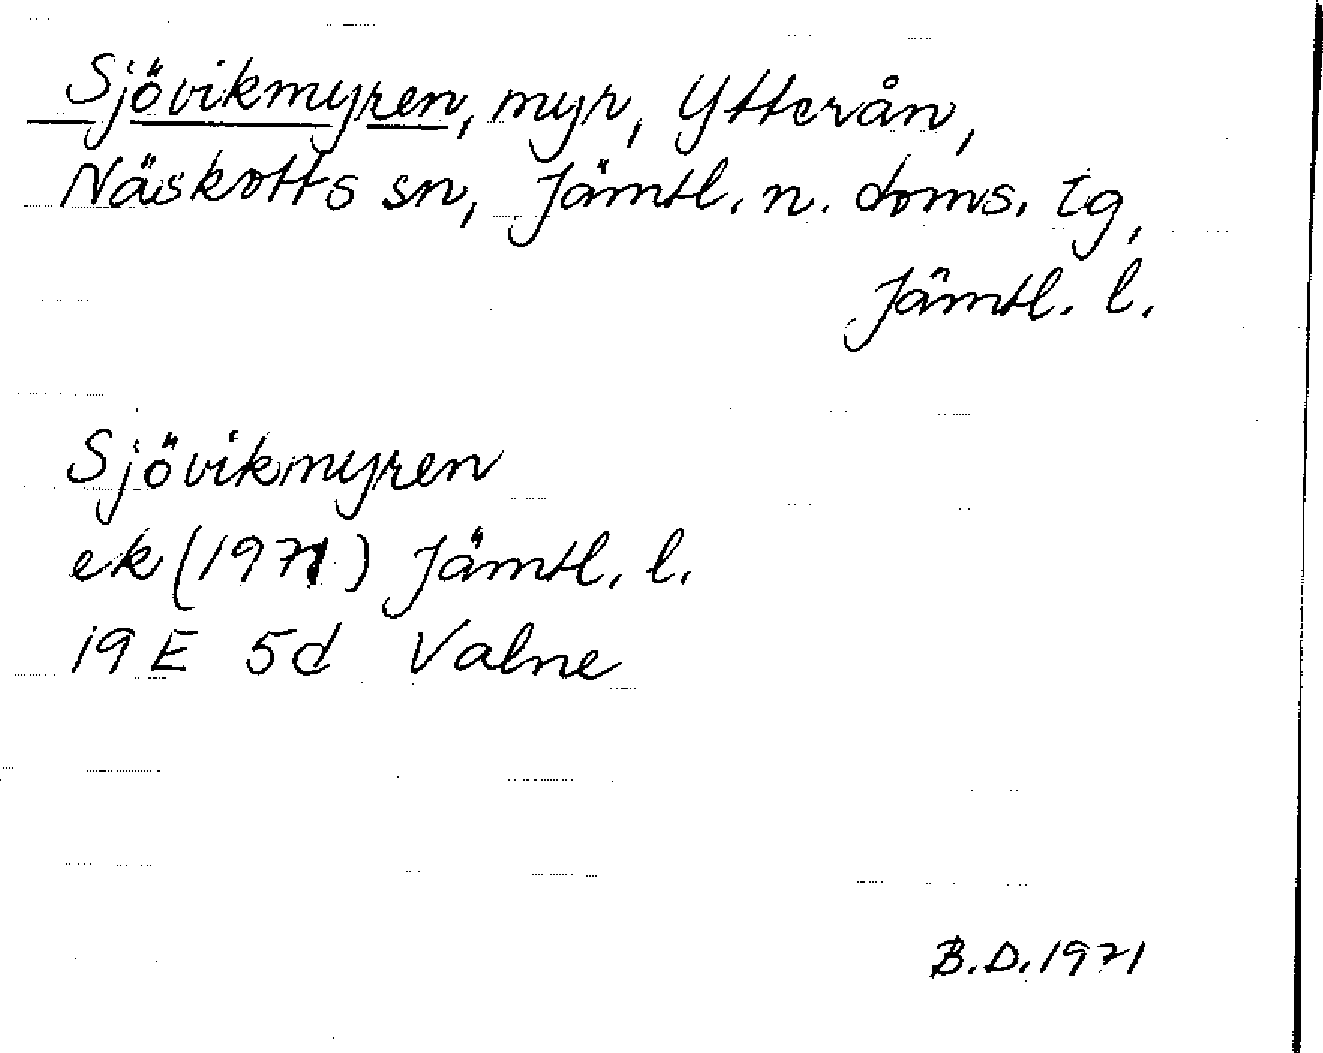 Sjövikmyren, myr, Ytterån,
Näskotts sn, Jämtl. n. doms. tg,
Jämtl. l.
Sjövikmyren
ek (1971) Jämtl. l.
19 E 5d Valne
B.D. 1971